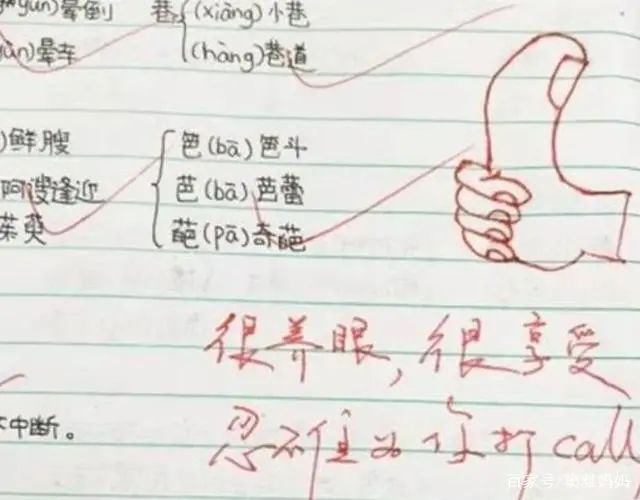 yūn)晕倒 巷 (xiàng)小巷
ùn)晕车 (hàng)巷道
)鲜腴 笆(bā)笆斗
阿谀逢迎 芭(bā)芭蕾
茱萸 葩(pā)奇葩
很养眼,很享受
中断。
忍不住为你打call
百家号/